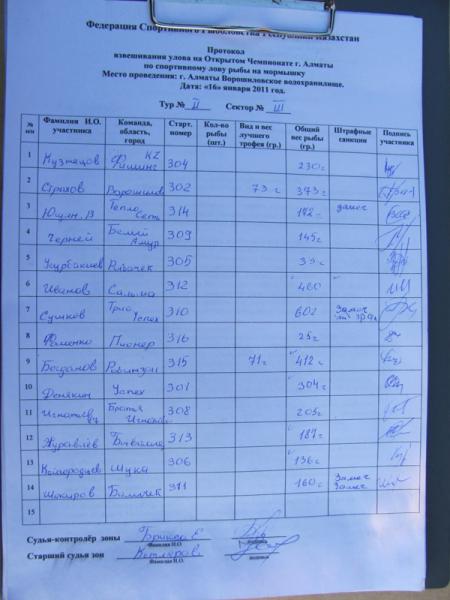 Федерация Спортивного Рыболовства Республики Казахстан
Протокол
взвешивания улова на Открытом Чемпионате г. Алматы
по спортивному лову рыбы на мормышку
Место проведения: г. Алматы Ворошиловское водохранилище.
Дата: «16» января 2011 год.
Тур № II Сектор № III
№ п/п Фамилия И.О. участника Команда, область, город Старт. номер Кол-во рыбы (шт.) Вид и вес лучшего трофея (гр.) Общий вес рыбы (гр.) Штрафные санкции Подпись участника
1 Кузнецов Фишинг KZ 304 230 г
2 Страхов 302 73 г 393 г
3 Юшн. В Тепло Сеть 314 172 г замеч
4 Черней Белый Амур 309 145 г
5 Рыбачек 305 35 г
6 Иванов Сальма 312 460
7 Сушков Трио Успех 310 602 Замеч
8 Фоменко Пионер 316 25 г
9 Богданов Робинзон 315 71 г 412 г
10 Успех 301 304 г
11 Игнатьев Братья 308 205 г
12 Журавлёв 313 187 г
13 Щука 306 136 г
14 Шакиров 311 160 г Замеч Замеч
15
Судья-контролёр зоны
Фамилия И.О. подпись
Старший судья зон Котляров
Фамилия И.О. подпись